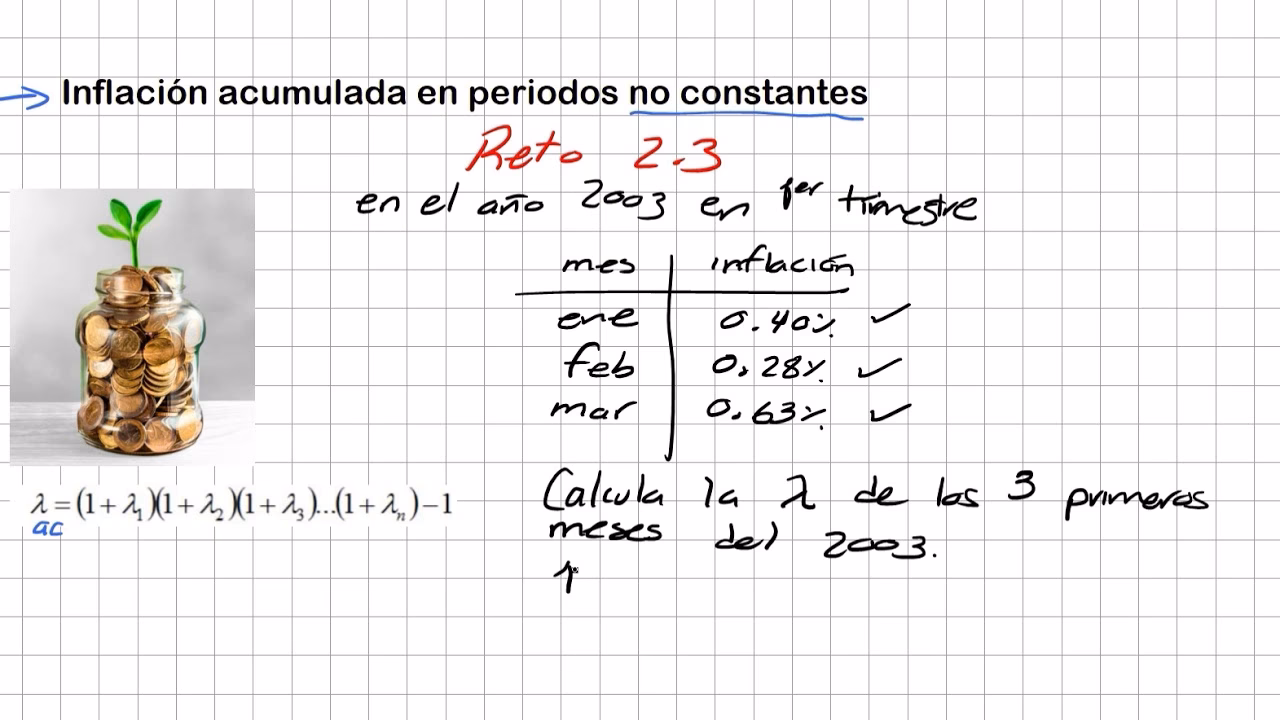 Inflación acumulada en periodos no constantes
Reto 2.3
en el año 2003 en 1er trimestre
mes inflación
ene 0.40%
feb 0.28%
mar 0.63%
λ = (1 + λ₁)(1 + λ₂)(1 + λ₃)...(1 + λₙ) − 1
ac
Calcula la λ de los 3 primeros
meses del 2003.